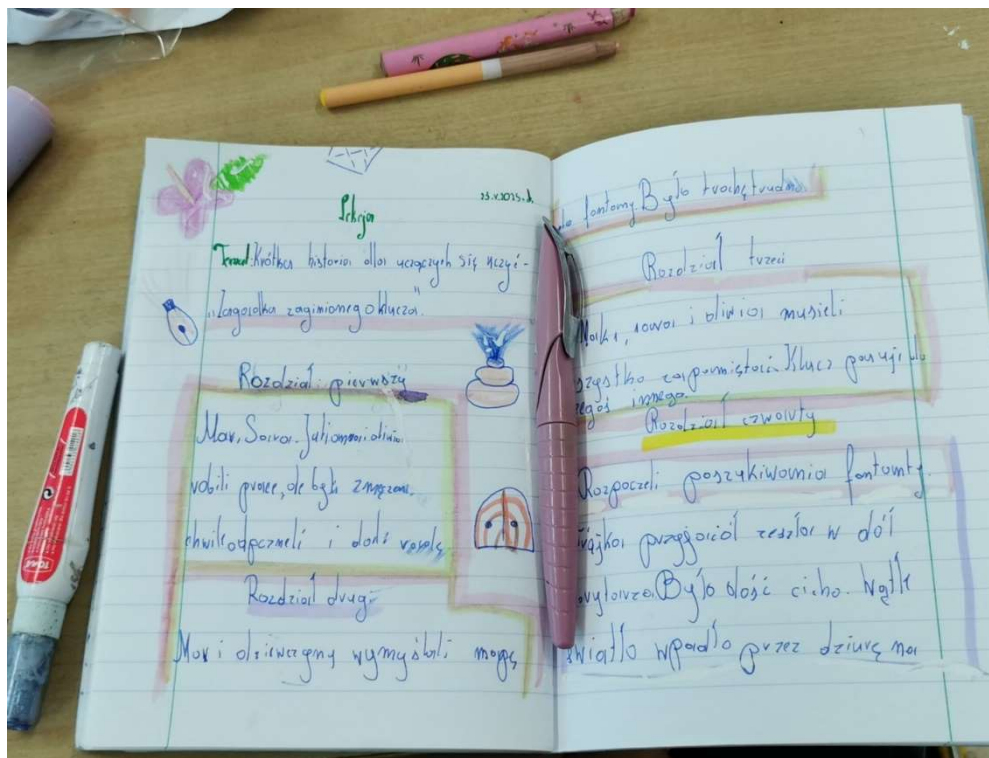 23.V.2025.r.
Lekcja
Temat: Krótka historia dla uczących się uczyć -
"Zagadka zaginionego klucza".
Rozdział pierwszy
Max, Sara, Julianna i oliwia
robili prace, ale byli zmęczeni.
chwile odpoczneli i dali
Rozdział drugi
Max i dziewczyny wymyślili mapę
do fontany. Było trochę trudno.
Rozdział trzeci
Maks, sara i oliwia musieli
wszystko zapamiętać. Klucz pasuje do
czegoś innego.
Rozdział czwarty
Rozpoczeli poszukiwania fontanty.
Trójka przyjaciół zeszła w dół
korytarza. Było dość cicho. Wątłe
światło wpadło przez dziurę na
TOMA